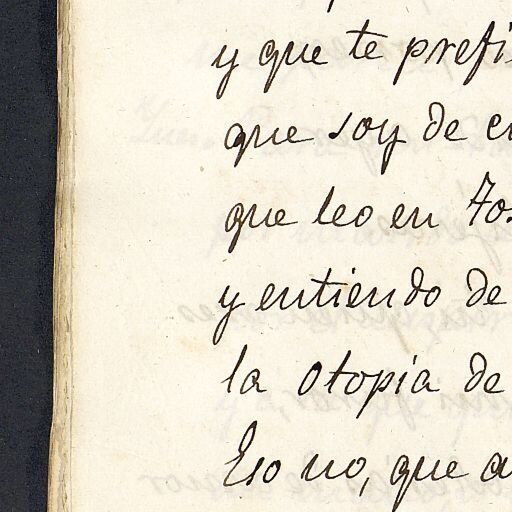 y que te prefi
que soy de cu
que leo en Fos
y entiendo de
la otopia de
Eso no, que a